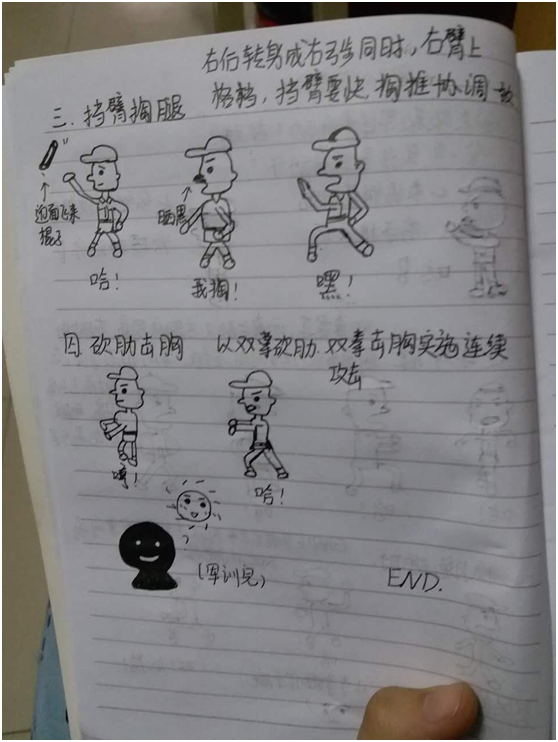 右后转身成右弓步同时,右臂上
格挡,挡臂要快,掏推协调一致
三.挡臂掏腿
迎面飞来
棍子
晒黑
哈!
我掏!
嘿!
四.砍肋击胸 以双掌砍肋.双拳击胸实施连续
攻击
哈!
(军训完)
END.